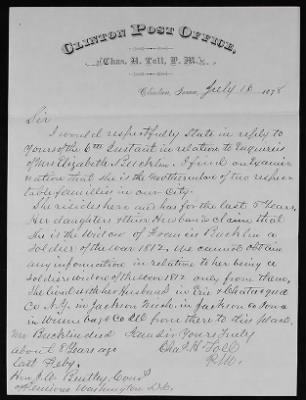 CLINTON POST OFFICE,
Chas. H. Toll, P. M.
Clinton, Iowa, July 16 1878
Sir
I would respectfully State in reply to
yours of the 6th Instant in relation to Enquiries
of Mrs Elizabeth Bucklin. I find on Exami
nation that she is the Mother in law of two respec
table families in our City.
She resides here and has for the last 5 Years,
Her daughters & their Husbands claim that
she is the Widow of Francis Bucklin a
Soldier of the war 1812. We cannot obtain
any information in relation to her being a
Soldiers widow of the war 1812 only from them,
She lived with her Husband in Erie & Chatauqua
Co N.Y. in Jackson Mich. in Jackson Co Iowa
in Co Ill from there to this place.
Mr Bucklin died
about 8 Years ago
last Feby.
I am Sir Yours Truly
Chas H Toll
P.M.
Hon J. A. Bentley Comd
of Pensions Washington D.C.